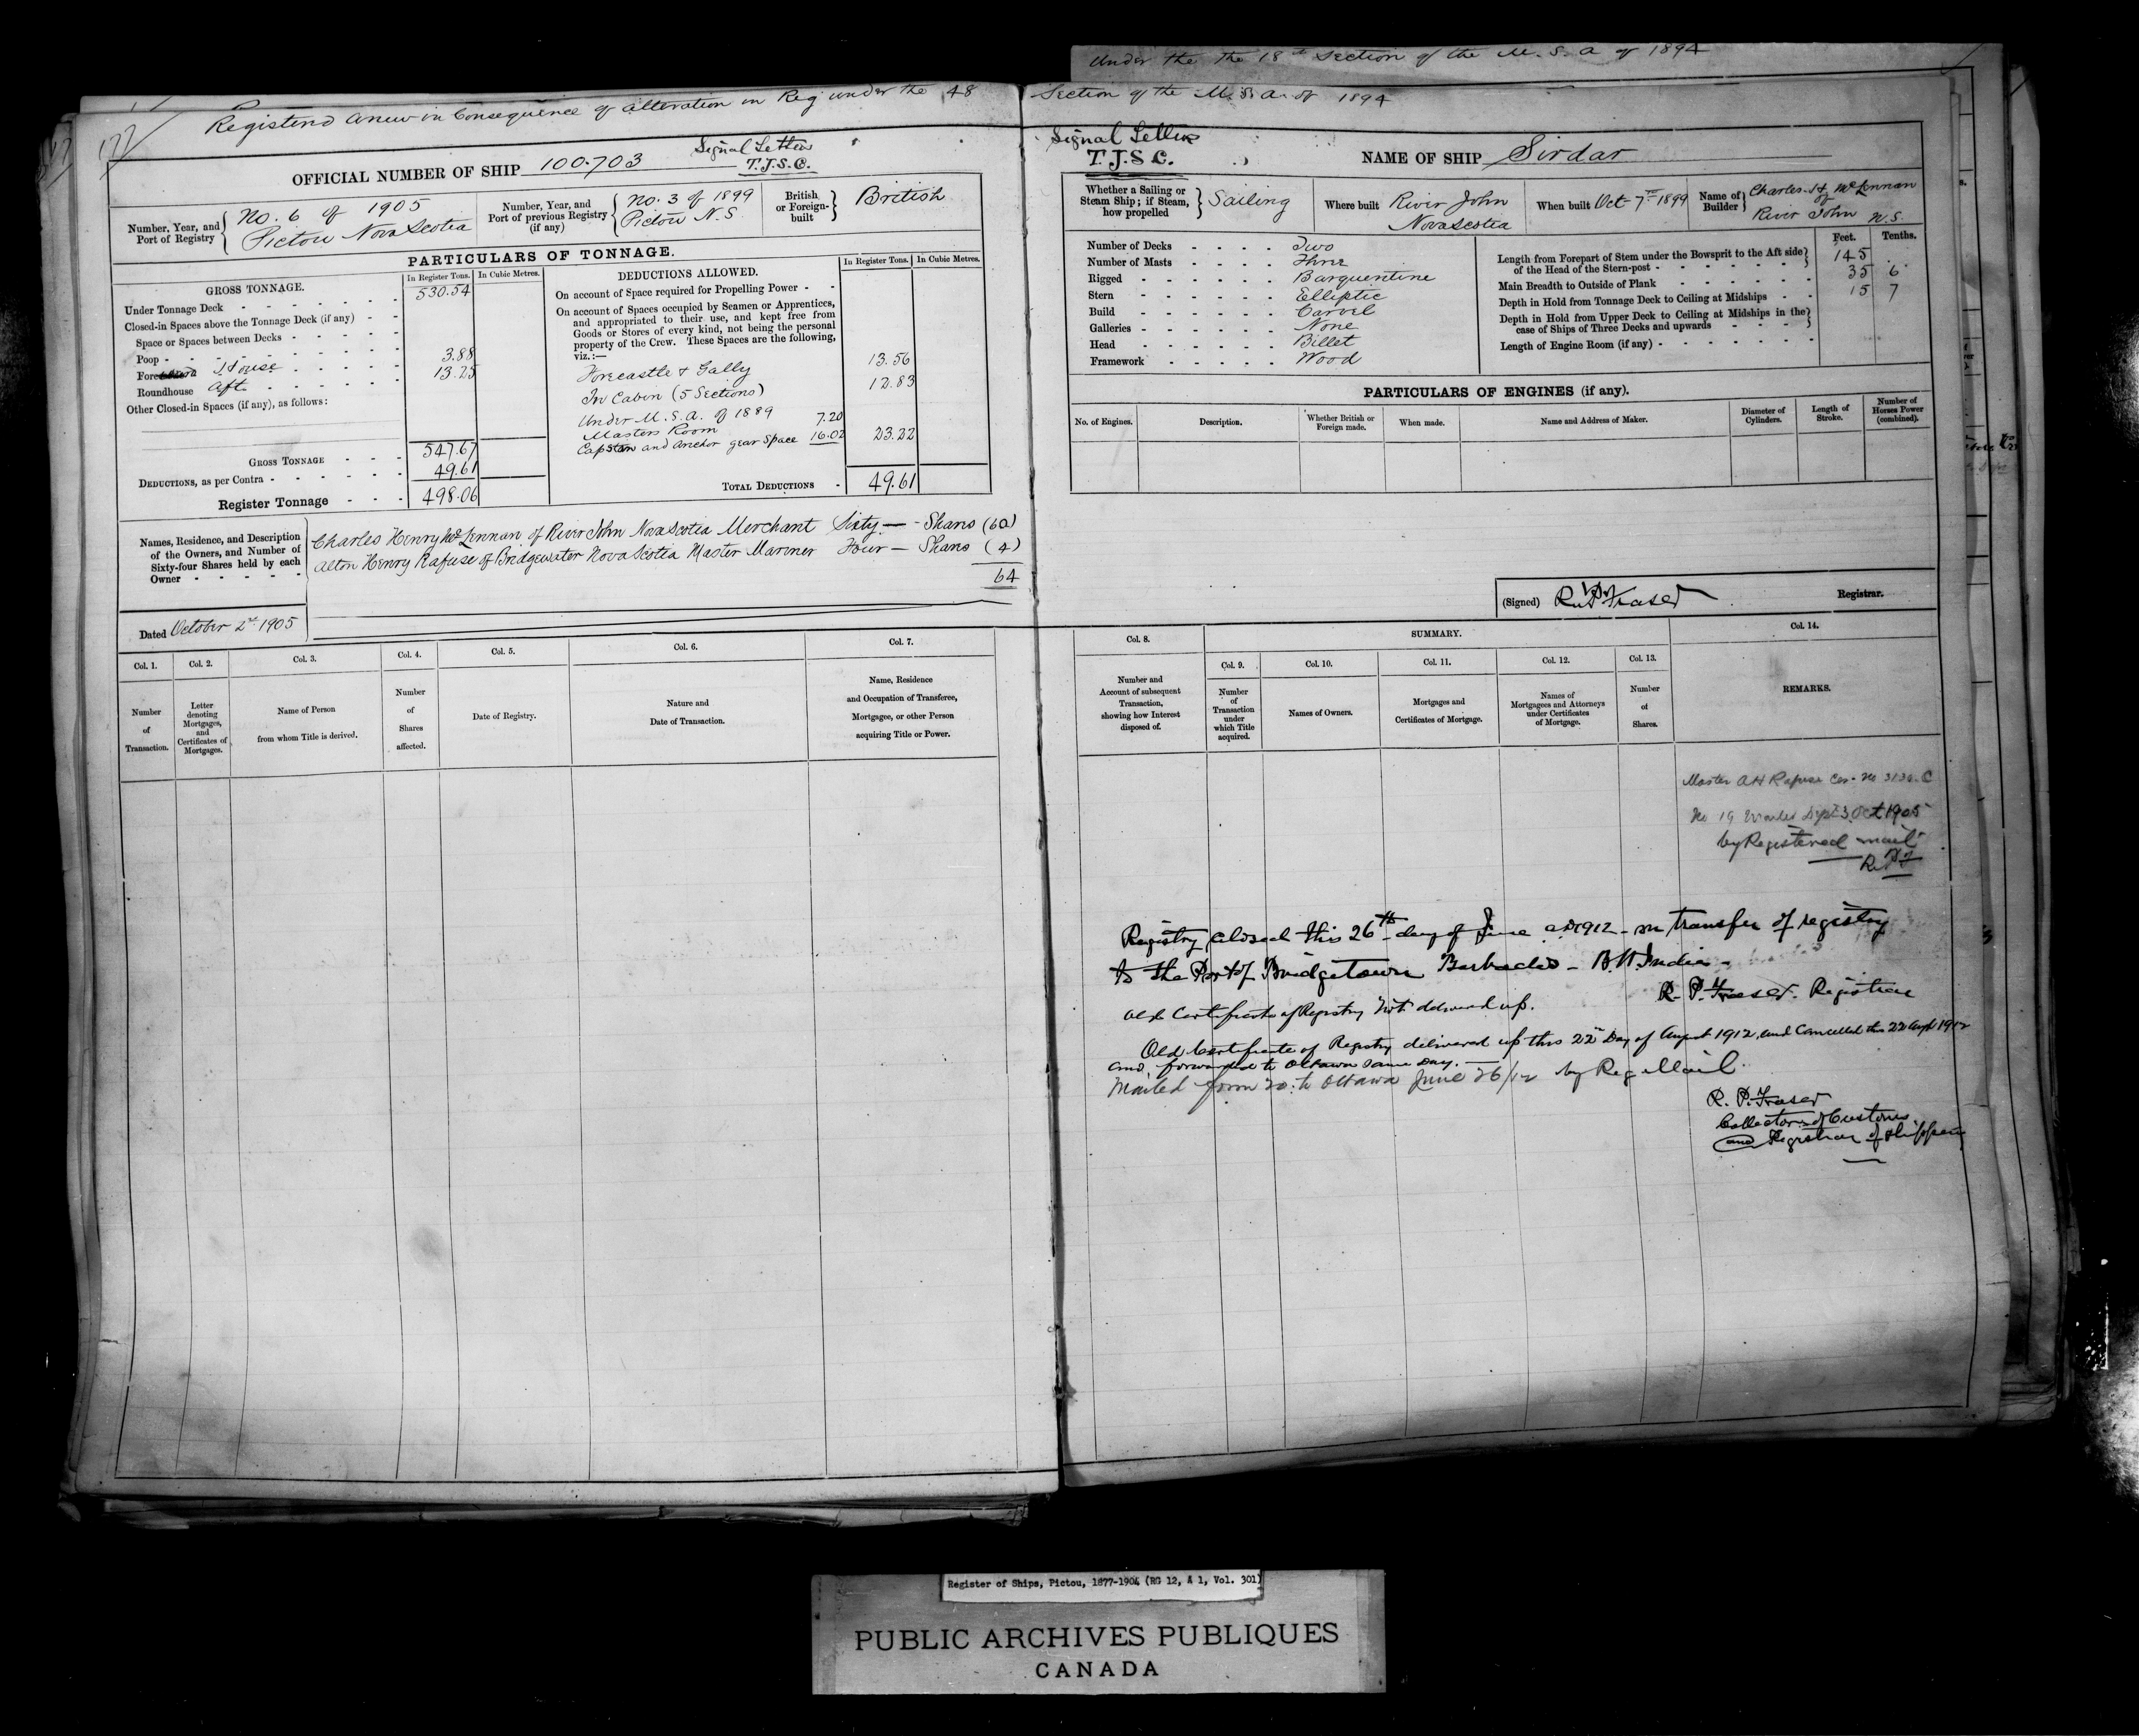 Under the the 18th Section of the M. S. A of 1894
Registered Anew in Consequence of alteration in Reg under the 48 Section of the M. S. A. of 1894
177
OFFICIAL NUMBER OF SHIP 100.703
Signal Letters
T.J.S.C.
Number, Year, and Port of Registry
No. 6 of 1905
Pictou Nova Scotia
Number, Year, and Port of previous Registry (if any)
No. 3 of 1899
Pictou N.S.
British or Foreign-built
British
PARTICULARS OF TONNAGE.
GROSS TONNAGE.
In Register Tons.
In Cubic Metres.
Under Tonnage Deck 530.54
Closed-in Spaces above the Tonnage Deck (if any)
Space or Spaces between Decks
Poop
Fore House 3.88
Roundhouse Aft 13.25
Other Closed-in Spaces (if any), as follows:
GROSS TONNAGE 547.67
DEDUCTIONS, as per Contra 49.61
Register Tonnage 498.06
DEDUCTIONS ALLOWED.
In Register Tons.
In Cubic Metres.
On account of Space required for Propelling Power
On account of Spaces occupied by Seamen or Apprentices,
and appropriated to their use, and kept free from
Goods or Stores of every kind, not being the personal
property of the Crew. These Spaces are the following,
viz.:—
Forecastle & Gally 13.56
In Cabin (5 Sections) 12.83
Under M.S.A. of 1889
Masters Room 7.20
Capstan and Anchor gear Space 16.02 23.22
TOTAL DEDUCTIONS 49.61
Names, Residence, and Description
of the Owners, and Number of
Sixty-four Shares held by each
Owner
Charles Henry McLennan of River John Nova Scotia Merchant Sixty — Shares (60)
Alton Henry Rafuse of Bridgewater Nova Scotia Master Mariner Four — Shares (4)
64
Dated October 2nd 1905
Col. 1.
Number
of
Transaction.
Col. 2.
Letter
denoting
Mortgages,
and
Certificates of
Mortgages.
Col. 3.
Name of Person
from whom Title is derived.
Col. 4.
Number
of
Shares
affected.
Col. 5.
Date of Registry.
Col. 6.
Nature and
Date of Transaction.
Col. 7.
Name, Residence
and Occupation of Transferee,
Mortgagee, or other Person
acquiring Title or Power.
Signal Letters
T.J.S.C.
NAME OF SHIP Sirdar
Whether a Sailing or
Steam Ship; if Steam,
how propelled
Sailing
Where built River John
Nova Scotia
When built Oct 7th 1899
Name of Builder
Charles H. McLennan
of
River John N.S.
Number of Decks Two
Number of Masts Three
Rigged Barquentine
Stern Elliptic
Build Carvel
Galleries None
Head Billet
Framework Wood
Feet. Tenths.
Length from Forepart of Stem under the Bowsprit to the Aft side
of the Head of the Stern-post 145 .
Main Breadth to Outside of Plank 35 6
Depth in Hold from Tonnage Deck to Ceiling at Midships 15 7
Depth in Hold from Upper Deck to Ceiling at Midships in the
case of Ships of Three Decks and upwards
Length of Engine Room (if any)
PARTICULARS OF ENGINES (if any).
No. of Engines.
Description.
Whether British or
Foreign made.
When made.
Name and Address of Maker.
Diameter of
Cylinders.
Length of
Stroke.
Number of
Horses Power
(combined).
(Signed) R. P. Fraser Registrar.
Col. 8.
Number and
Account of subsequent
Transaction,
showing how Interest
disposed of.
SUMMARY.
Col. 9.
Number
of
Transaction
under
which Title
acquired.
Col. 10.
Names of Owners.
Col. 11.
Mortgages and
Certificates of Mortgage.
Col. 12.
Names of
Mortgagees and Attorneys
under Certificates
of Mortgage.
Col. 13.
Number
of
Shares.
Col. 14.
REMARKS.
Master A H Rafuse Cer. No
No 19 Mailed Dept 3 Oct 1905
by Registered mail
Registry closed this 26th day of June AD 1912 - on transfer of registry
to the Port of Bridgetown Barbados - B. W. Indies -
R. P. Fraser. Registrar
Old Certificate of Registry not delivered up.
Old Certificate of Registry delivered up this 22nd Day of August 1912, and Cancelled this 22 Augt 1912
and forwarded to Ottawa same day.
Mailed form 20 to Ottawa June 26/12 by Reg Mail.
R. P. Fraser
Collector of Customs
and Registrar of Shipping
Register of Ships, Pictou, 1877-1904 (RG 12, A 1, Vol. 301)
PUBLIC ARCHIVES PUBLIQUES
CANADA